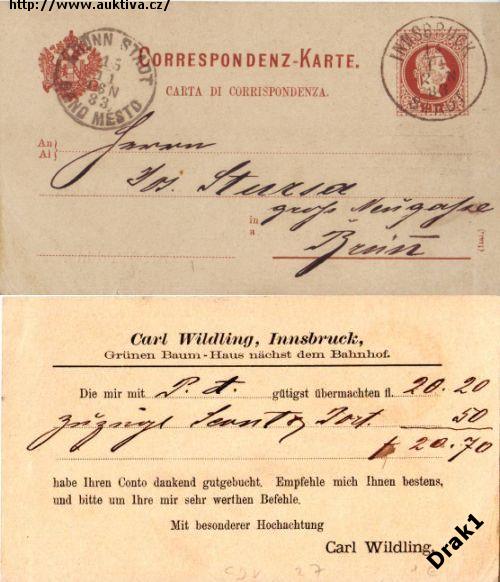 http://www.auktiva.cz/
CORRESPONDENZ-KARTE.
CARTA DI CORRISPONDENZA.
BRÜNN STADT
15
1
83
BRNO MĚSTO
INNSBRUCK
An
Ai
Herrn
Jos. Stursa
in
a
große Neugasse
Brünn
(Ital.)
Carl Wildling, Innsbruck,
Grünen Baum-Haus nächst dem Bahnhof.
Die mir mit P. A. gütigst übermachten fl. 20.20
zuzügl Sconto Port. 50
f 20.70
habe Ihren Conto dankend gutgebucht. Empfehle mich Ihnen bestens,
und bitte um Ihre mir sehr werthen Befehle.
Mit besonderer Hochachtung
Carl Wildling.
Drak1